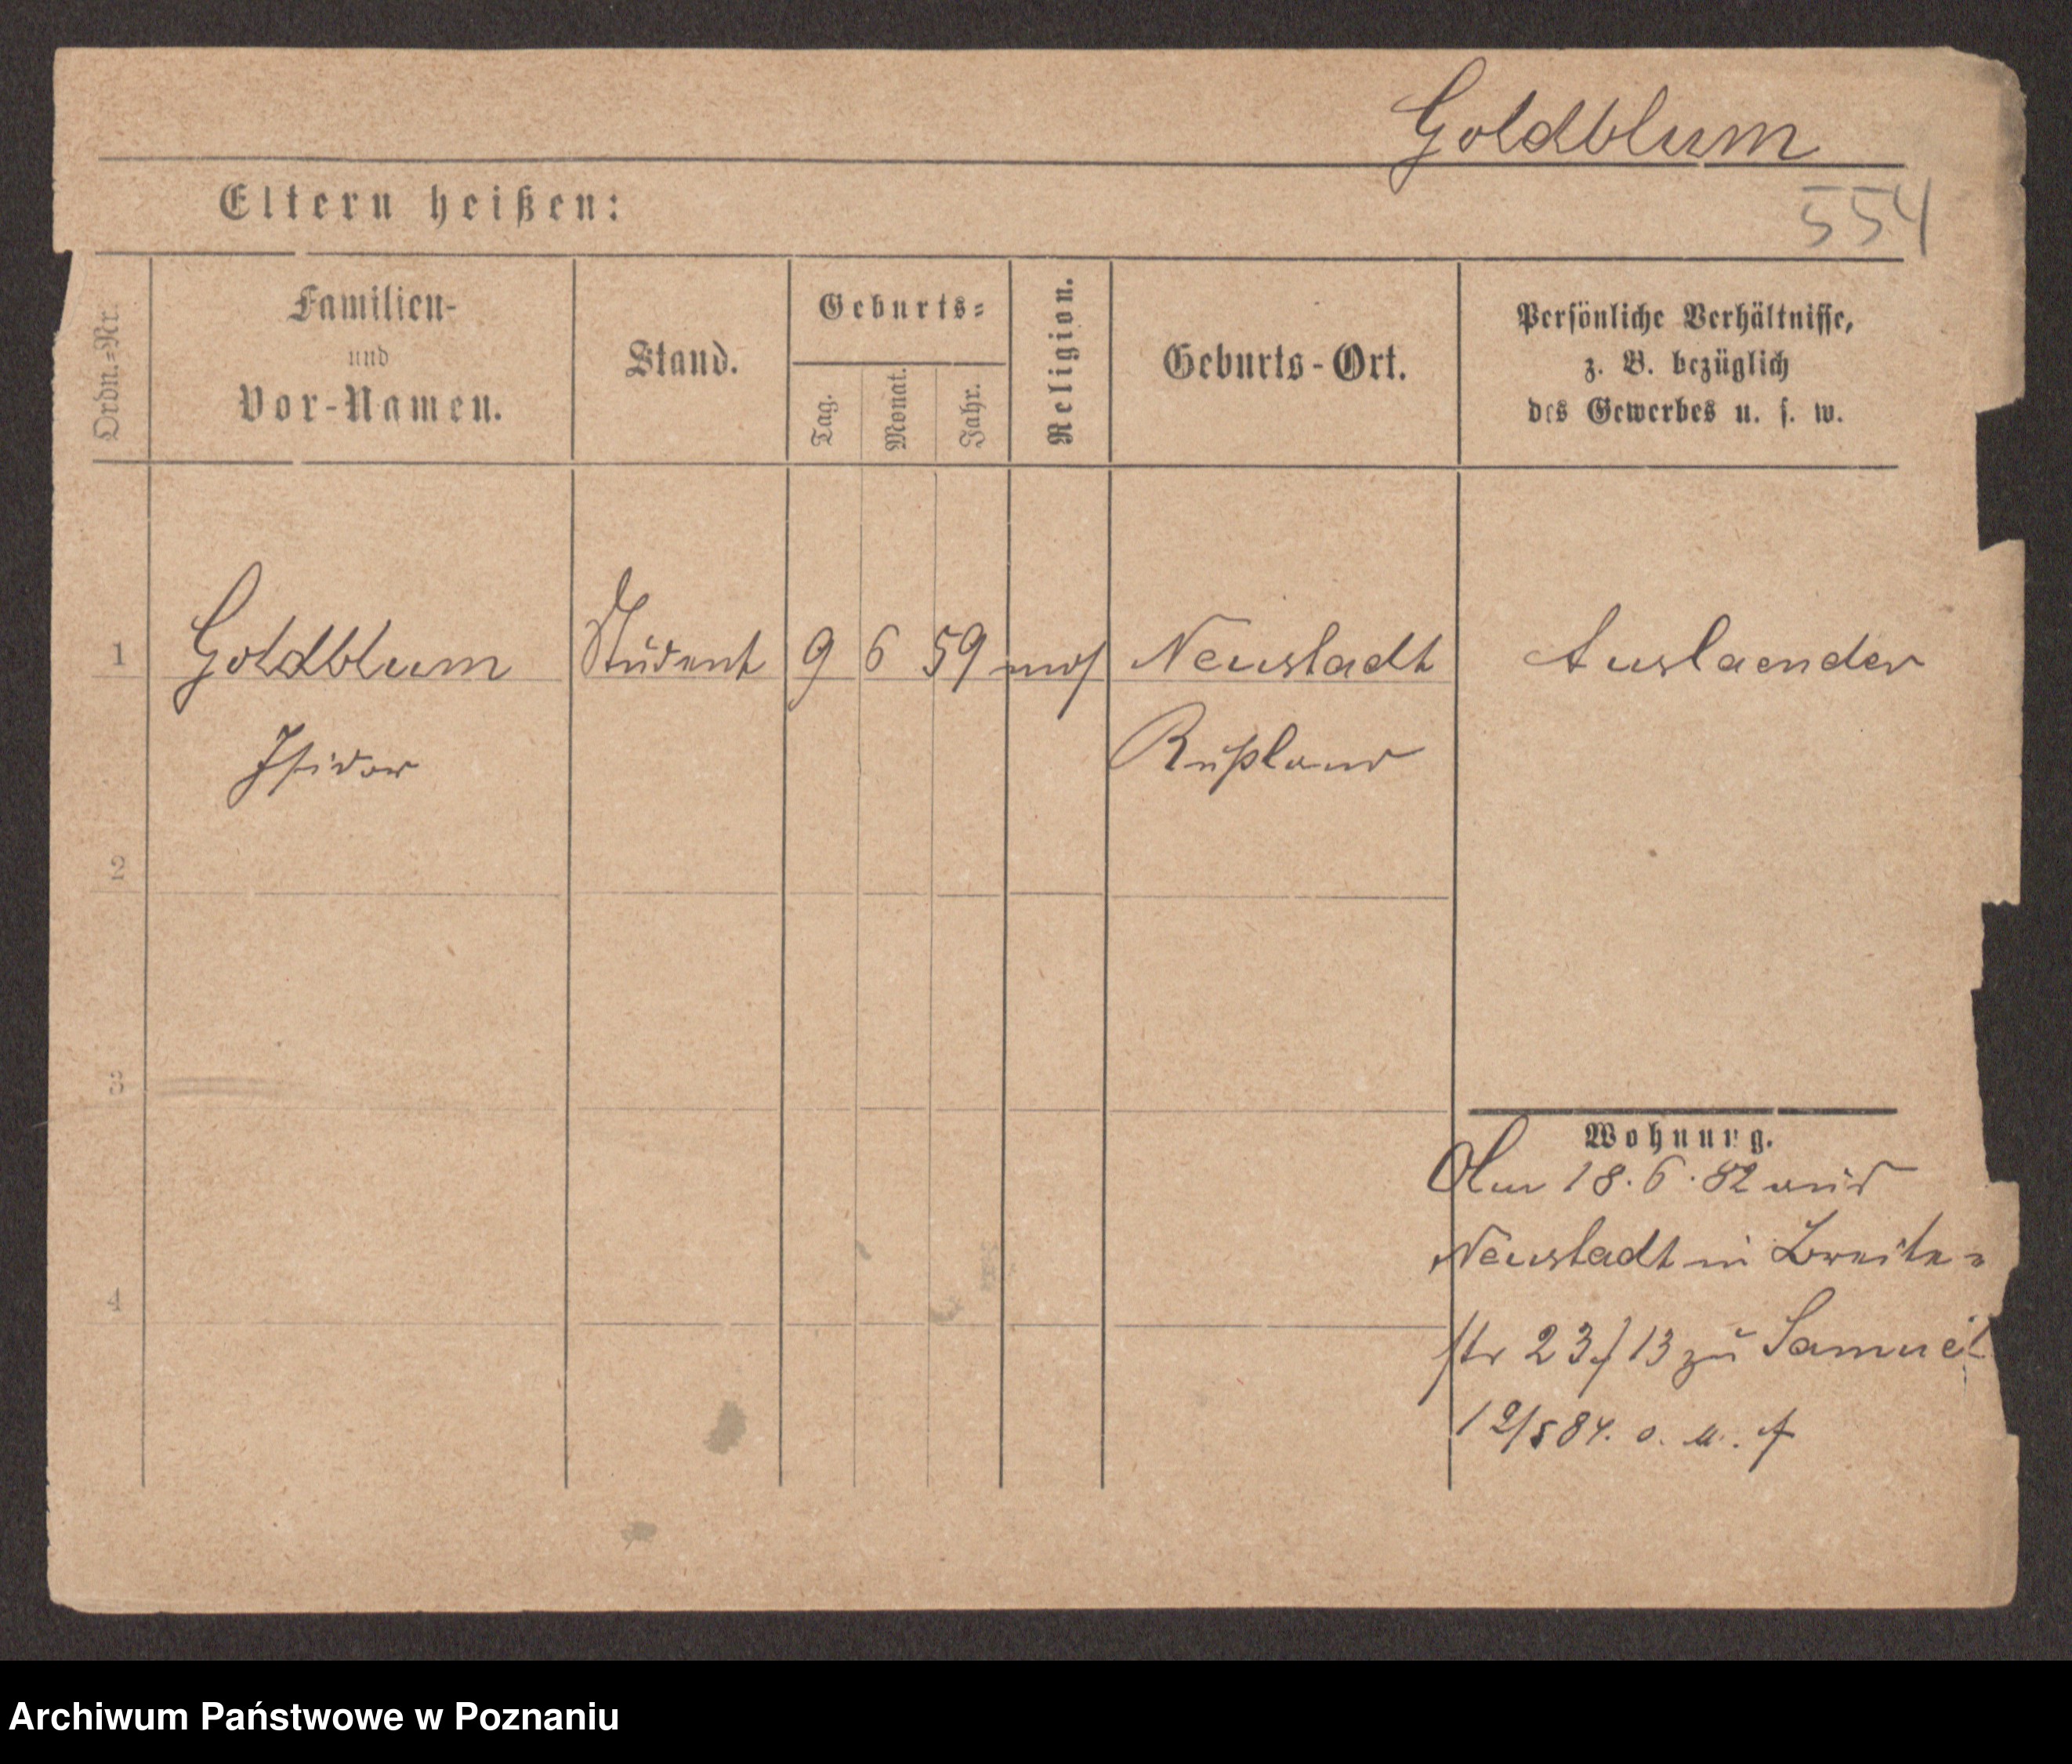 Goldblum
554
Eltern heißen:
Ordn.=Nr.
Familien-
und
Vor-Namen.
Stand.
Geburts=
Tag.
Monat.
Jahr.
Religion.
Geburts-Ort.
Persönliche Verhältnisse,
z. B. bezüglich
des Gewerbes u. s. w.
1 Goldblum Student 9 6 59 mos Neustadt Auslaender
Isidor Rußland
2
3
4
Wohnung.
Am 18.6.82 aus
Neustadt in Breite=
str 23/13 zu Samuel
12/5 84. o. A. f
Archiwum Państwowe w Poznaniu